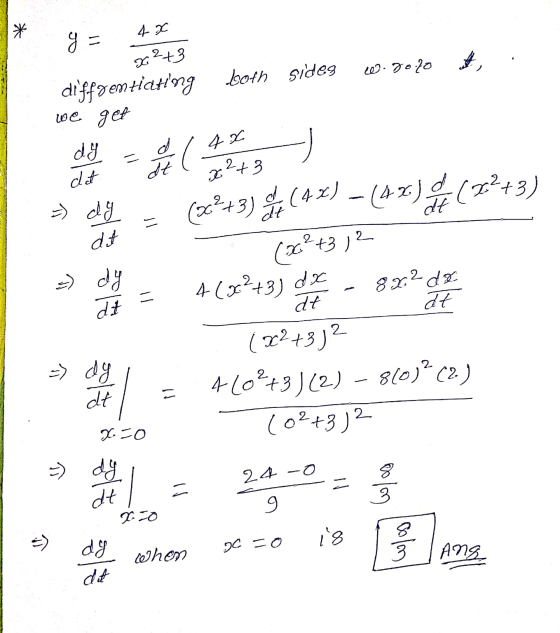 * y = 4x / (x²+3)
diffrentiating both sides w.r.to t,
we get
dy/dt = d/dt ( 4x / (x²+3) )
=> dy/dt = ( (x²+3) d/dt (4x) - (4x) d/dt (x²+3) ) / (x²+3)²
=> dy/dt = ( 4(x²+3) dx/dt - 8x² dx/dt ) / (x²+3)²
=> dy/dt |x=0 = ( 4(0²+3)(2) - 8(0)²(2) ) / (0²+3)²
=> dy/dt |x=0 = (24-0)/9 = 8/3
=> dy/dt when x=0 is 8/3 Ans